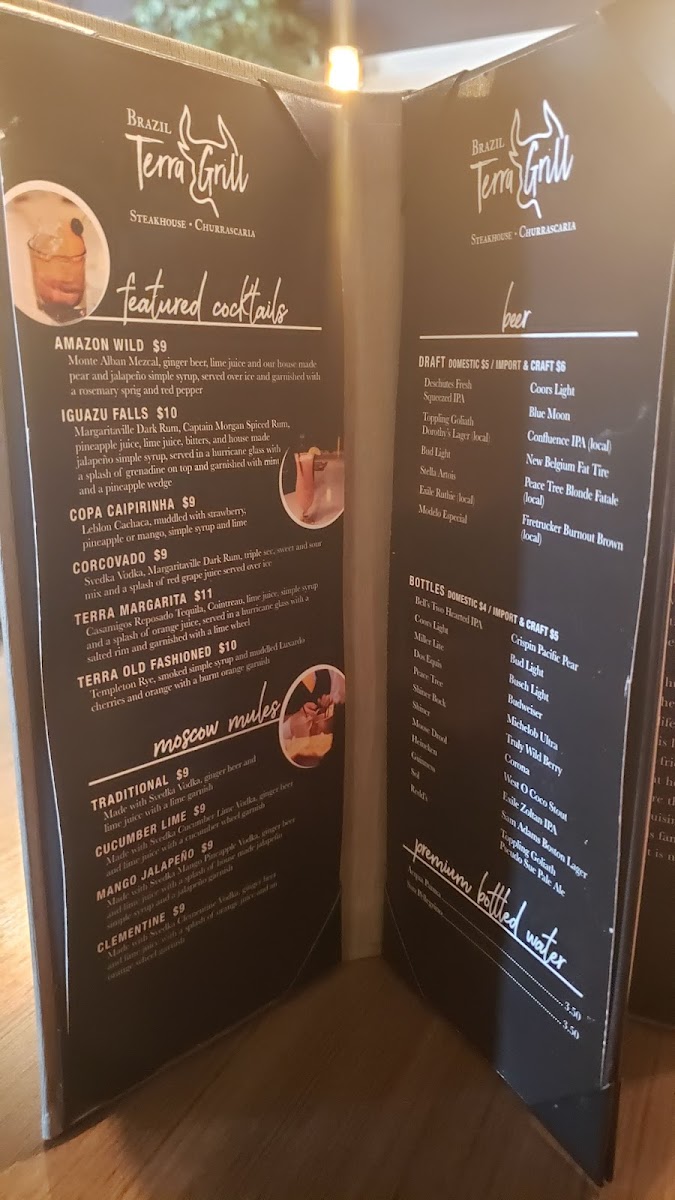 BRAZIL
Terra Grill
STEAKHOUSE • CHURRASCARIA
featured cocktails
AMAZON WILD $9
Monte Alban Mezcal, ginger beer, lime juice and our house made
pear and jalapeño simple syrup, served over ice and garnished with
a rosemary sprig and red pepper
IGUAZU FALLS $10
Margaritaville Dark Rum, Captain Morgan Spiced Rum,
pineapple juice, lime juice, bitters, and house made
jalapeño simple syrup, served in a hurricane glass with
a splash of grenadine on top and garnished with mint
and a pineapple wedge
COPA CAIPIRINHA $9
Leblon Cachaca, muddled with strawberry,
pineapple or mango, simple syrup and lime
CORCOVADO $9
Svedka Vodka, Margaritaville Dark Rum, triple sec, sweet and sour
mix and a splash of red grape juice served over ice
TERRA MARGARITA $11
Casamigos Reposado Tequila, Cointreau, lime juice, simple syrup
and a splash of orange juice, served in a hurricane glass with a
salted rim and garnished with a lime wheel
TERRA OLD FASHIONED $10
Templeton Rye, smoked simple syrup and muddled Luxardo
cherries and orange with a burnt orange garnish
moscow mules
TRADITIONAL $9
Made with Svedka Vodka, ginger beer and
lime juice with a lime garnish
CUCUMBER LIME $9
Made with Svedka Cucumber Lime Vodka, ginger beer
and lime juice with a cucumber wheel garnish
MANGO JALAPEÑO $9
Made with Svedka Mango Pineapple Vodka, ginger beer
and lime juice with a splash of house made jalapeño
simple syrup and a jalapeño garnish
CLEMENTINE $9
Made with Svedka Clementine Vodka, ginger beer
and lime juice with a splash of orange juice and an
orange wheel garnish
BRAZIL
Terra Grill
STEAKHOUSE • CHURRASCARIA
beer
DRAFT DOMESTIC $5 / IMPORT & CRAFT $6
Deschutes Fresh
Squeezed IPA
Toppling Goliath
Dorothy's Lager (local)
Bud Light
Stella Artois
Exile Ruthie (local)
Modelo Especial
Coors Light
Blue Moon
Confluence IPA (local)
New Belgium Fat Tire
Peace Tree Blonde Fatale
(local)
Firetrucker Burnout Brown
(local)
BOTTLES DOMESTIC $4 / IMPORT & CRAFT $5
Bell's Two Hearted IPA
Coors Light
Miller Lite
Dos Equis
Peace Tree
Shiner Bock
Shiner
Moose Drool
Heineken
Guinness
Sol
Redd's
Crispin Pacific Pear
Bud Light
Busch Light
Budweiser
Michelob Ultra
Truly Wild Berry
Corona
West O Coco Stout
Exile Zoltan IPA
Sam Adams Boston Lager
Toppling Goliath
Pseudo Sue Pale Ale
premium bottled water
Acqua Panna 3.50
San Pellegrino 3.50